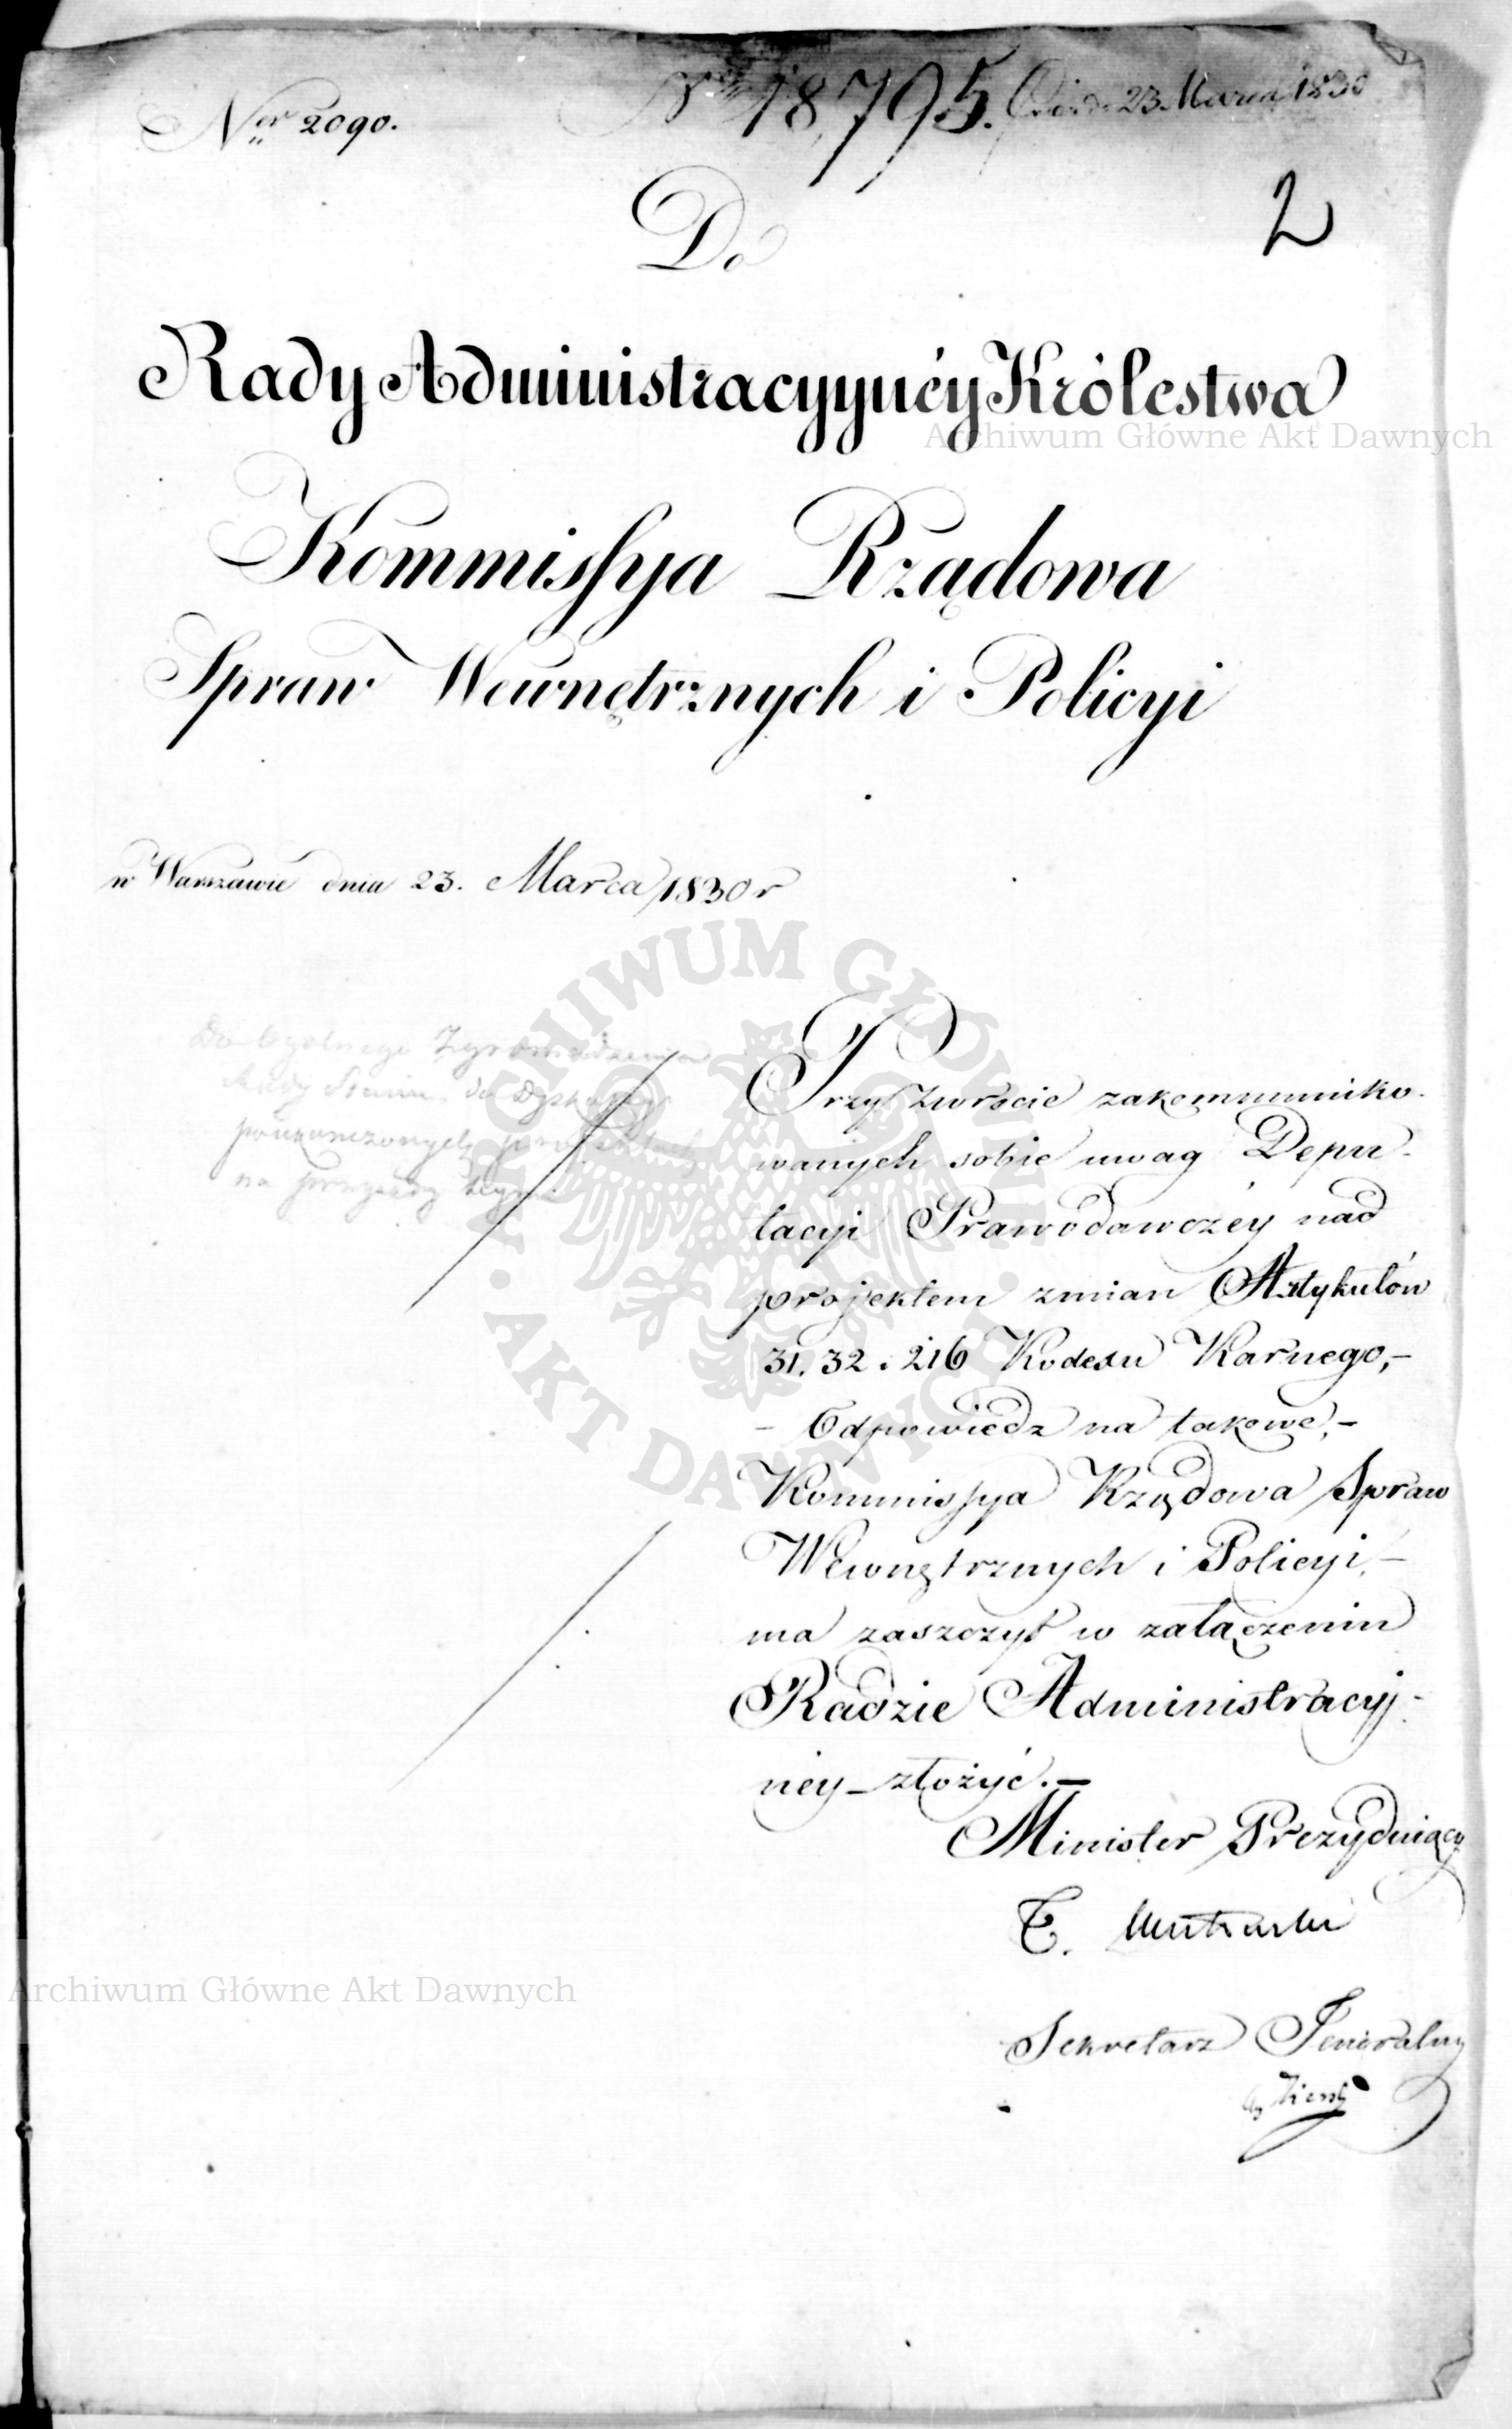 Ner 2090.
18795. 23 Marca 1830
2
Do
Rady Administracyynéy Królestwa
Archiwum Główne Akt Dawnych
Kommissya Rządowa
Spraw Wewnętrznych i Policyi
w Warszawie dnia 23. Marca 1830 r
ARCHIWUM GŁÓWNE AKT DAWNYCH
Do Ogolnego Zgromadzenia
Rady Stanu do
na
Przy zwrócie zakommuniko-
wanych sobie uwag Depu-
tacyi Prawodawczéy nad
projektem zmian Artykułów
31. 32. i 216 Kodexu Karnego,–
– Odpowiedz na takowe,–
Kommissya Rządowa Spraw
Wewnętrznych i Policyi,–
ma zaszczyt w załączeniu
Radzie Administracyj-
néy złożyć.–
Minister Prezyduiący
T. Mostowski
Archiwum Główne Akt Dawnych
Sekretarz Jeneralny